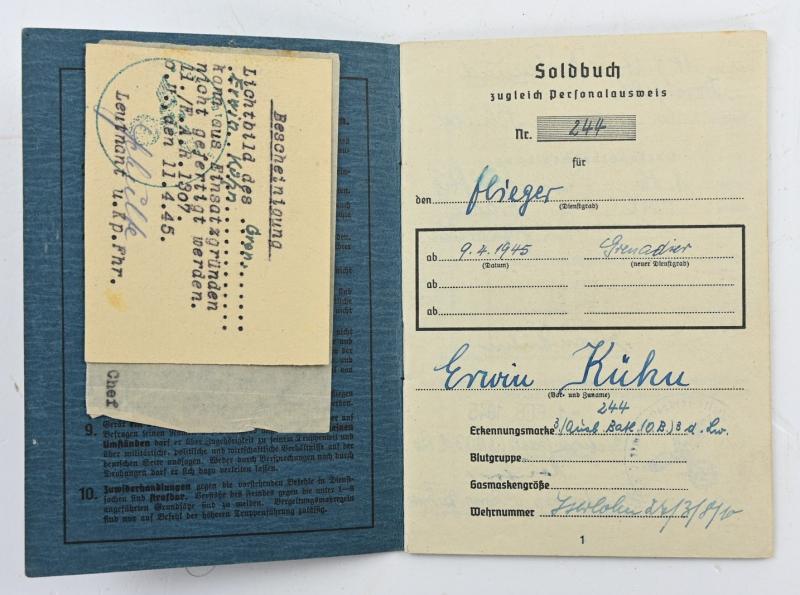 Bescheinigung
Lichtbild des Gren.
Erwin Kühn
kann aus Einsatzgründen
nicht gefertigt werden.
O.U., den 11.4.45.
Leutnant u.Kp.Fhr.
Chef
9.
Befragen seinen
Umständen darf er über Zugehörigkeit zu seinem Truppenteil und
über militärische, politische und wirtschaftliche Verhältnisse auf der
deutschen Seite aussagen. Weder durch Versprechungen noch durch
Drohungen darf er sich dazu verleiten lassen.
10. Zuwiderhandlungen gegen die vorstehenden Befehle in Dienst-
sachen sind strafbar. Verstöße des Feindes gegen die unter 1–8
angeführten Grundsätze sind zu melden. Vergeltungsmaßregeln
sind nur auf Befehl der höheren Truppenführung zulässig.
Soldbuch
zugleich Personalausweis
Nr. 244
für
den Flieger
(Dienstgrad)
ab 9.4.1945 Grenadier
(Datum) (neuer Dienstgrad)
ab
ab
Erwin Kühn
(Vor- und Zuname)
244
Erkennungsmarke 3/Ausb. Batl. (O.B.) 3 d. Lw.
Blutgruppe
Gasmaskengröße
Wehrnummer Iserlohn
1